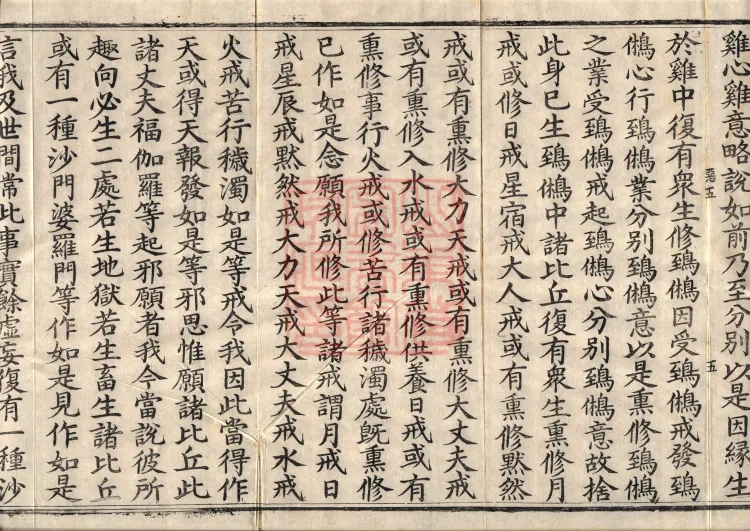 雞心雞意略說如前乃至分別以是因緣生
於雞中復有眾生修鵄鵂因受鵄鵂戒發鵄
鵂心行鵄鵂業分別鵄鵂意以是熏修鵄鵂
之業受鵄鵂戒起鵄鵂心分別鵄鵂意故捨
此身已生鵄鵂中諸比丘復有眾生熏修月
戒或修日戒星宿戒大人戒或有熏修默然
戒或有熏修大力天戒或有熏修大丈夫戒
或有熏修入水戒或有熏修供養日戒或有
熏修事行火戒或修苦行諸穢濁處既熏修
已作如是念願我所修此等諸戒謂月戒日
戒星辰戒默然戒大力天戒大丈夫戒水戒
火戒苦行穢濁如是等戒令我因此當得作
天或得天報發如是等邪思惟願諸比丘此
諸丈夫福伽羅等起邪願者我今當說彼所
趣向必生二處若生地獄若生畜生諸比丘
或有一種沙門婆羅門等作如是見作如是
言我及世間常此事實餘虛妄復有一種沙